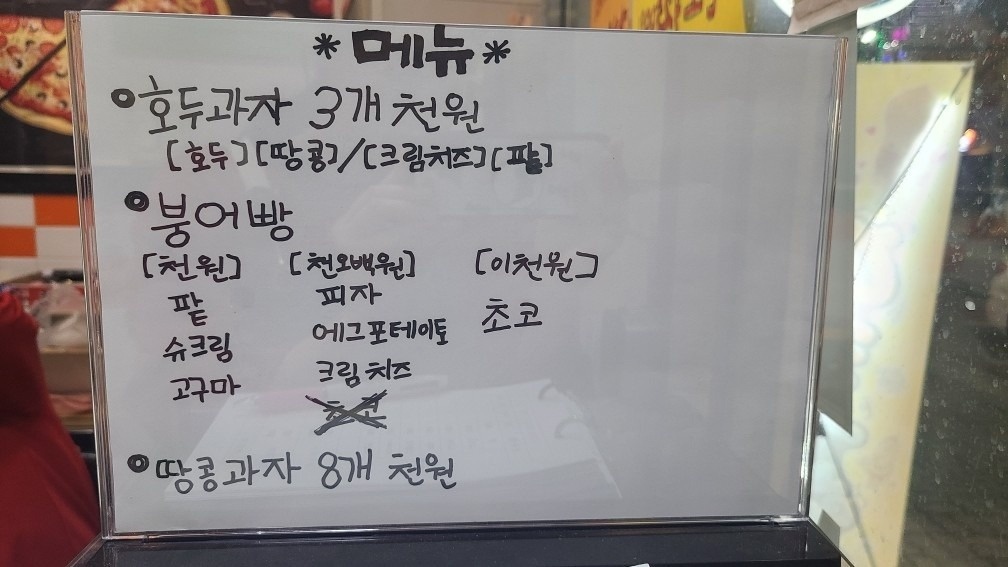 * 메뉴 *
호두과자 3개 천원
[호두][땅콩]/[크림치즈][팥]
붕어빵
[천원] [천오백원] [이천원]
팥 피자 초코
슈크림 에그포테이토
고구마 크림치즈
초코
땅콩과자 8개 천원